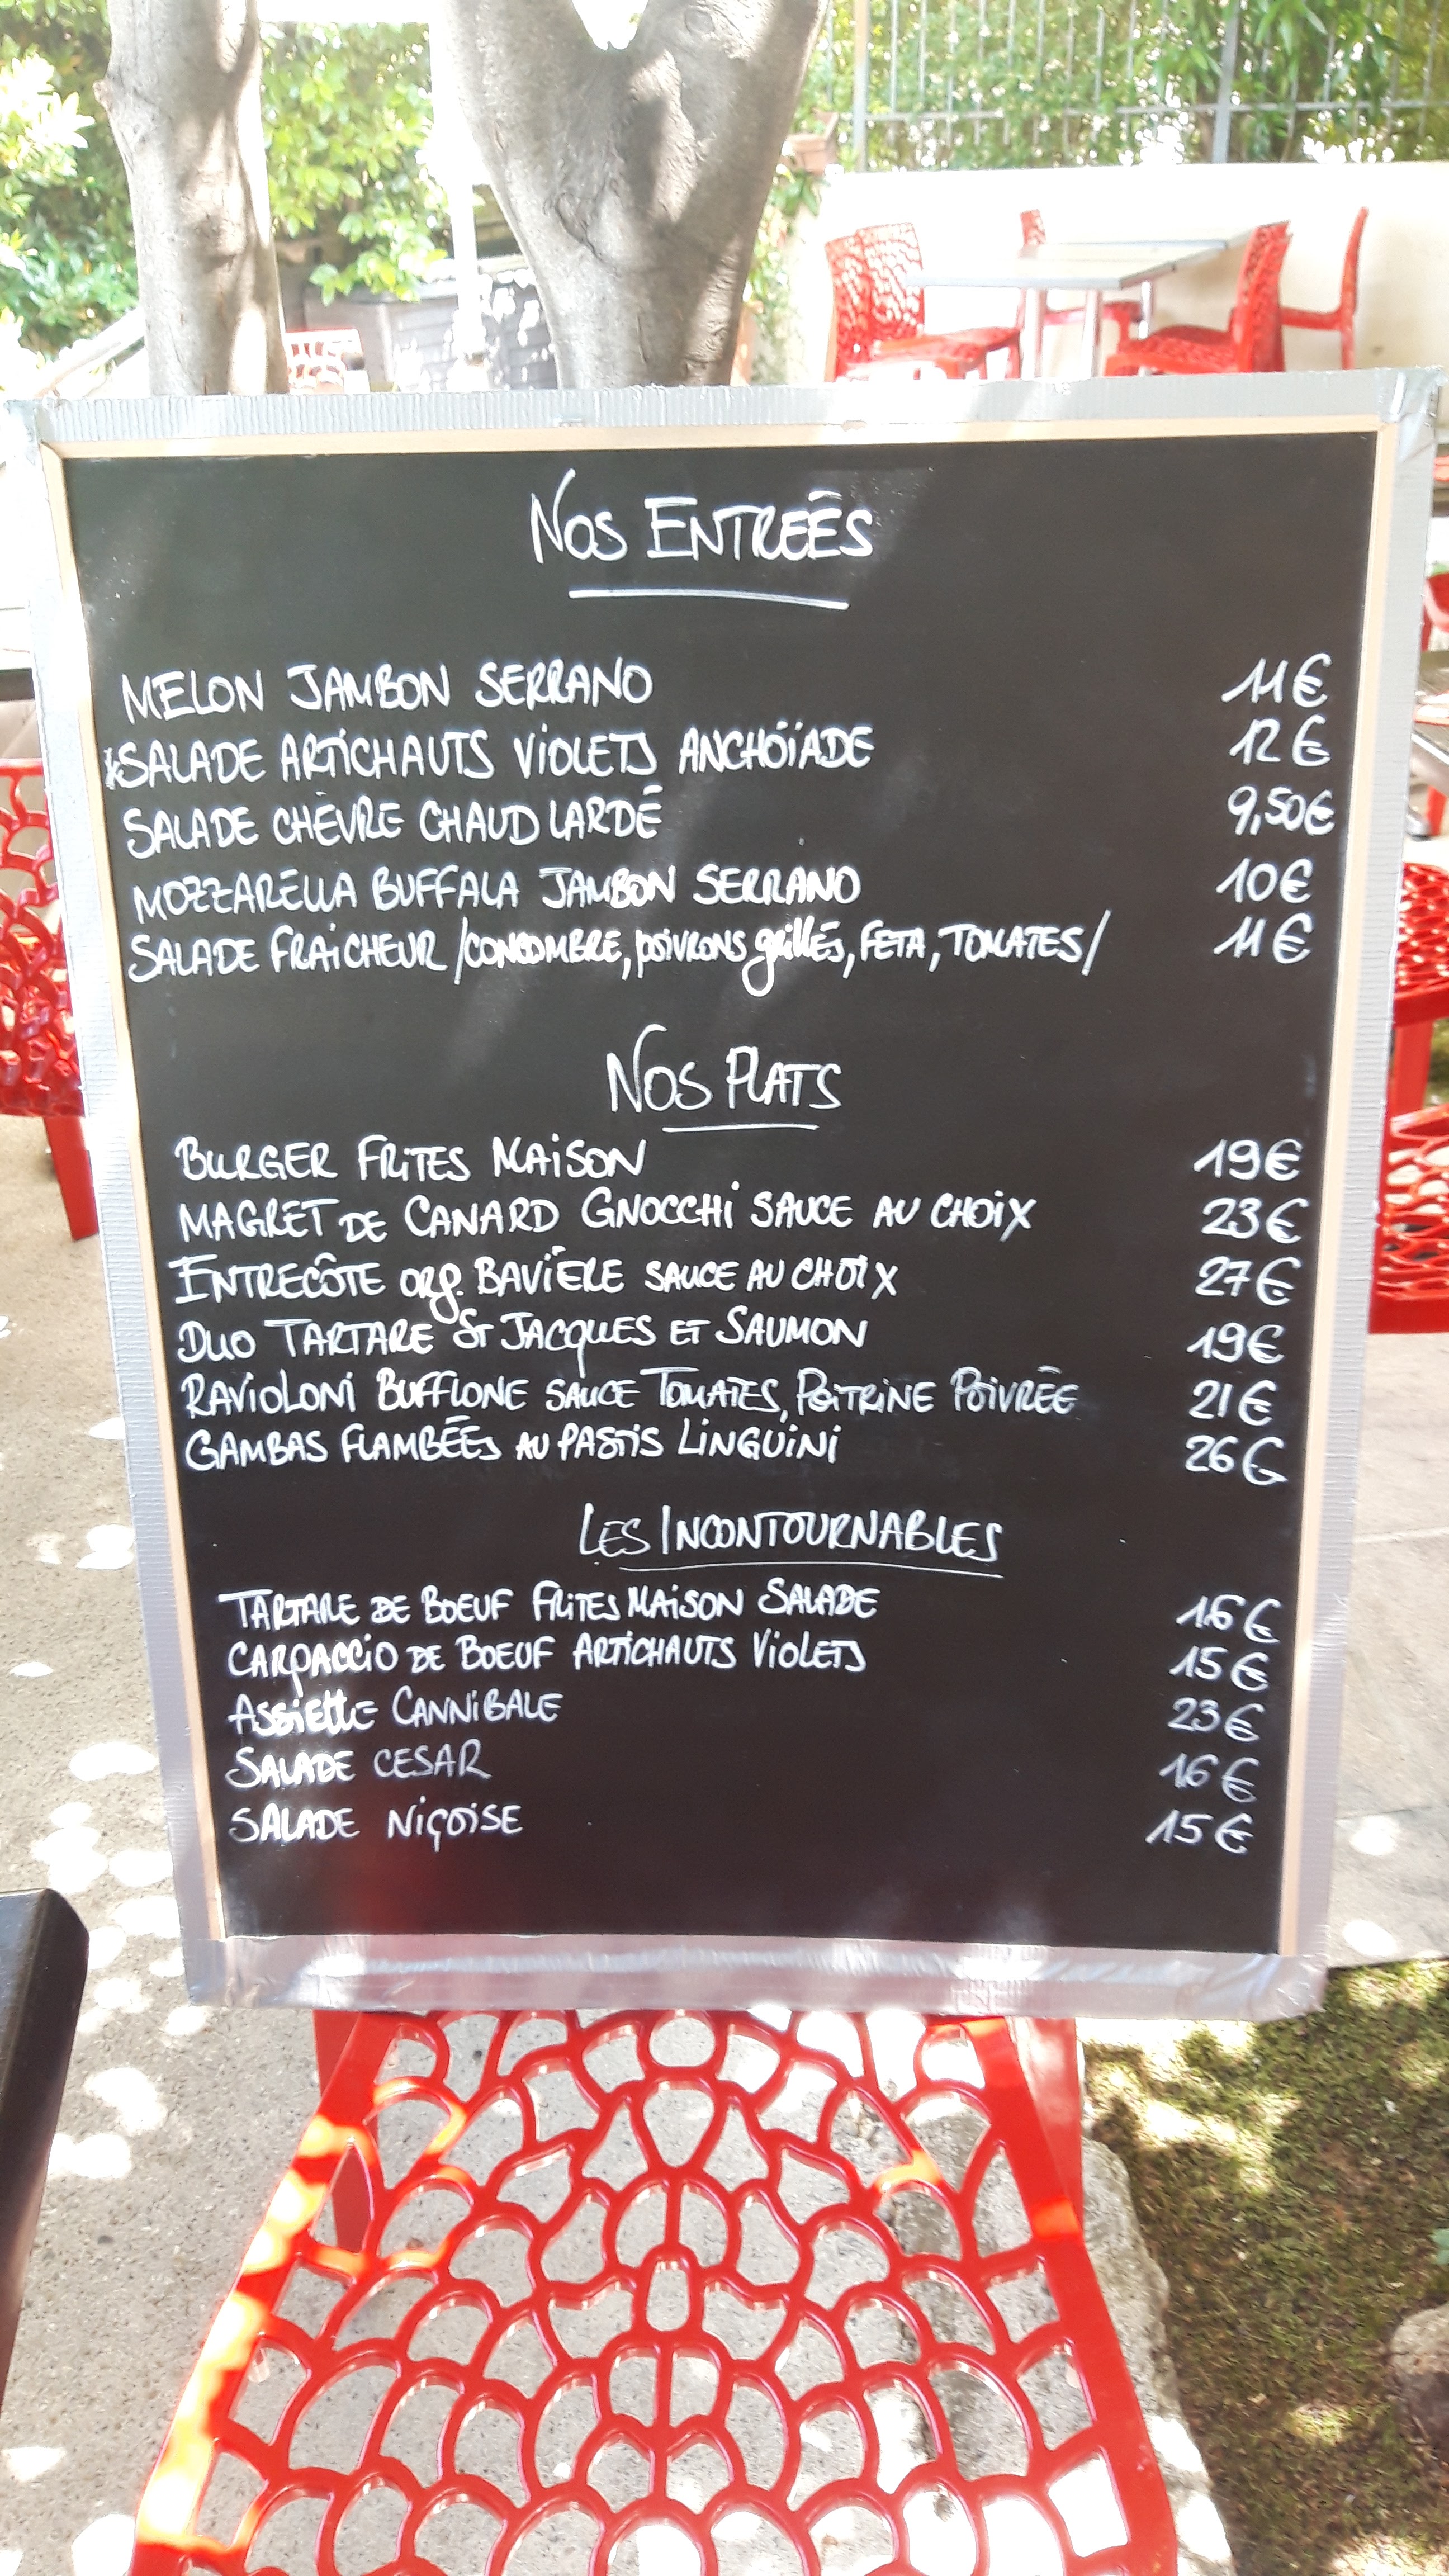 NOS ENTREÉS
MELON JAMBON SERRANO 11€
*SALADE ARTICHAUTS VIOLETS ANCHOÏADE 12€
SALADE CHÈVRE CHAUD LARDÉ 9,50€
MOZZARELLA BUFFALA JAMBON SERRANO 10€
SALADE FRAICHEUR /CONCOMBRE, POIVRONS grillés, FETA, TOMATES/ 11€
NOS PLATS
BURGER FRITES MAISON 19€
MAGRET DE CANARD GNOCCHI SAUCE AU CHOIX 23€
ENTRECÔTE org. BAVIÈRE SAUCE AU CHOIX 27€
DUO TARTARE St JACQUES ET SAUMON 19€
RAVIOLONI BUFFLONE SAUCE TOMATES, POITRINE POIVRÉE 21€
GAMBAS FLAMBÉES AU PASTIS LINGUINI 26€
LES INCONTOURNABLES
TARTARE DE BOEUF FRITES MAISON SALADE 16€
CARPACCIO DE BOEUF ARTICHAUTS VIOLETS 15€
ASSIETTE CANNIBALE 23€
SALADE CESAR 16€
SALADE NIÇOISE 15€